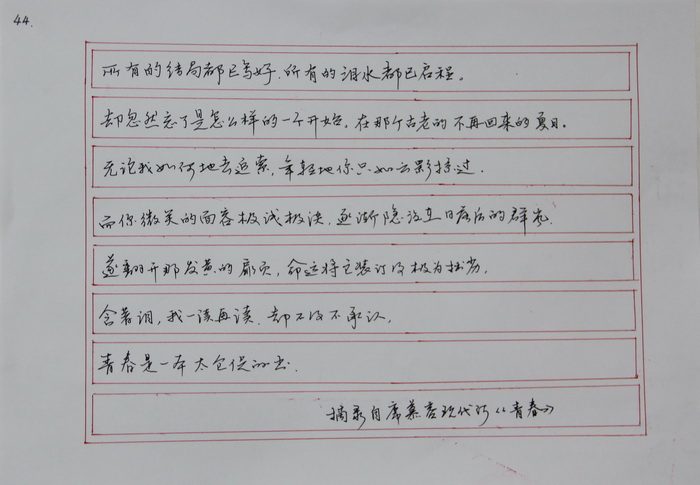 44.
所有的结局都已写好，所有的泪水都已启程。
却忽然忘了是怎么样的一个开始，在那个古老的不再回来的夏日。
无论我如何地去追索，年轻地你只如云影掠过。
而你微笑的面容极浅极淡，逐渐隐没在日落后的群岚
遂翻开那发黄的扉页，命运将它装订得极为拙劣，
含着泪，我一读再读，却不得不承认，
青春是一本太仓促的书。
摘录自席慕容现代诗《青春》